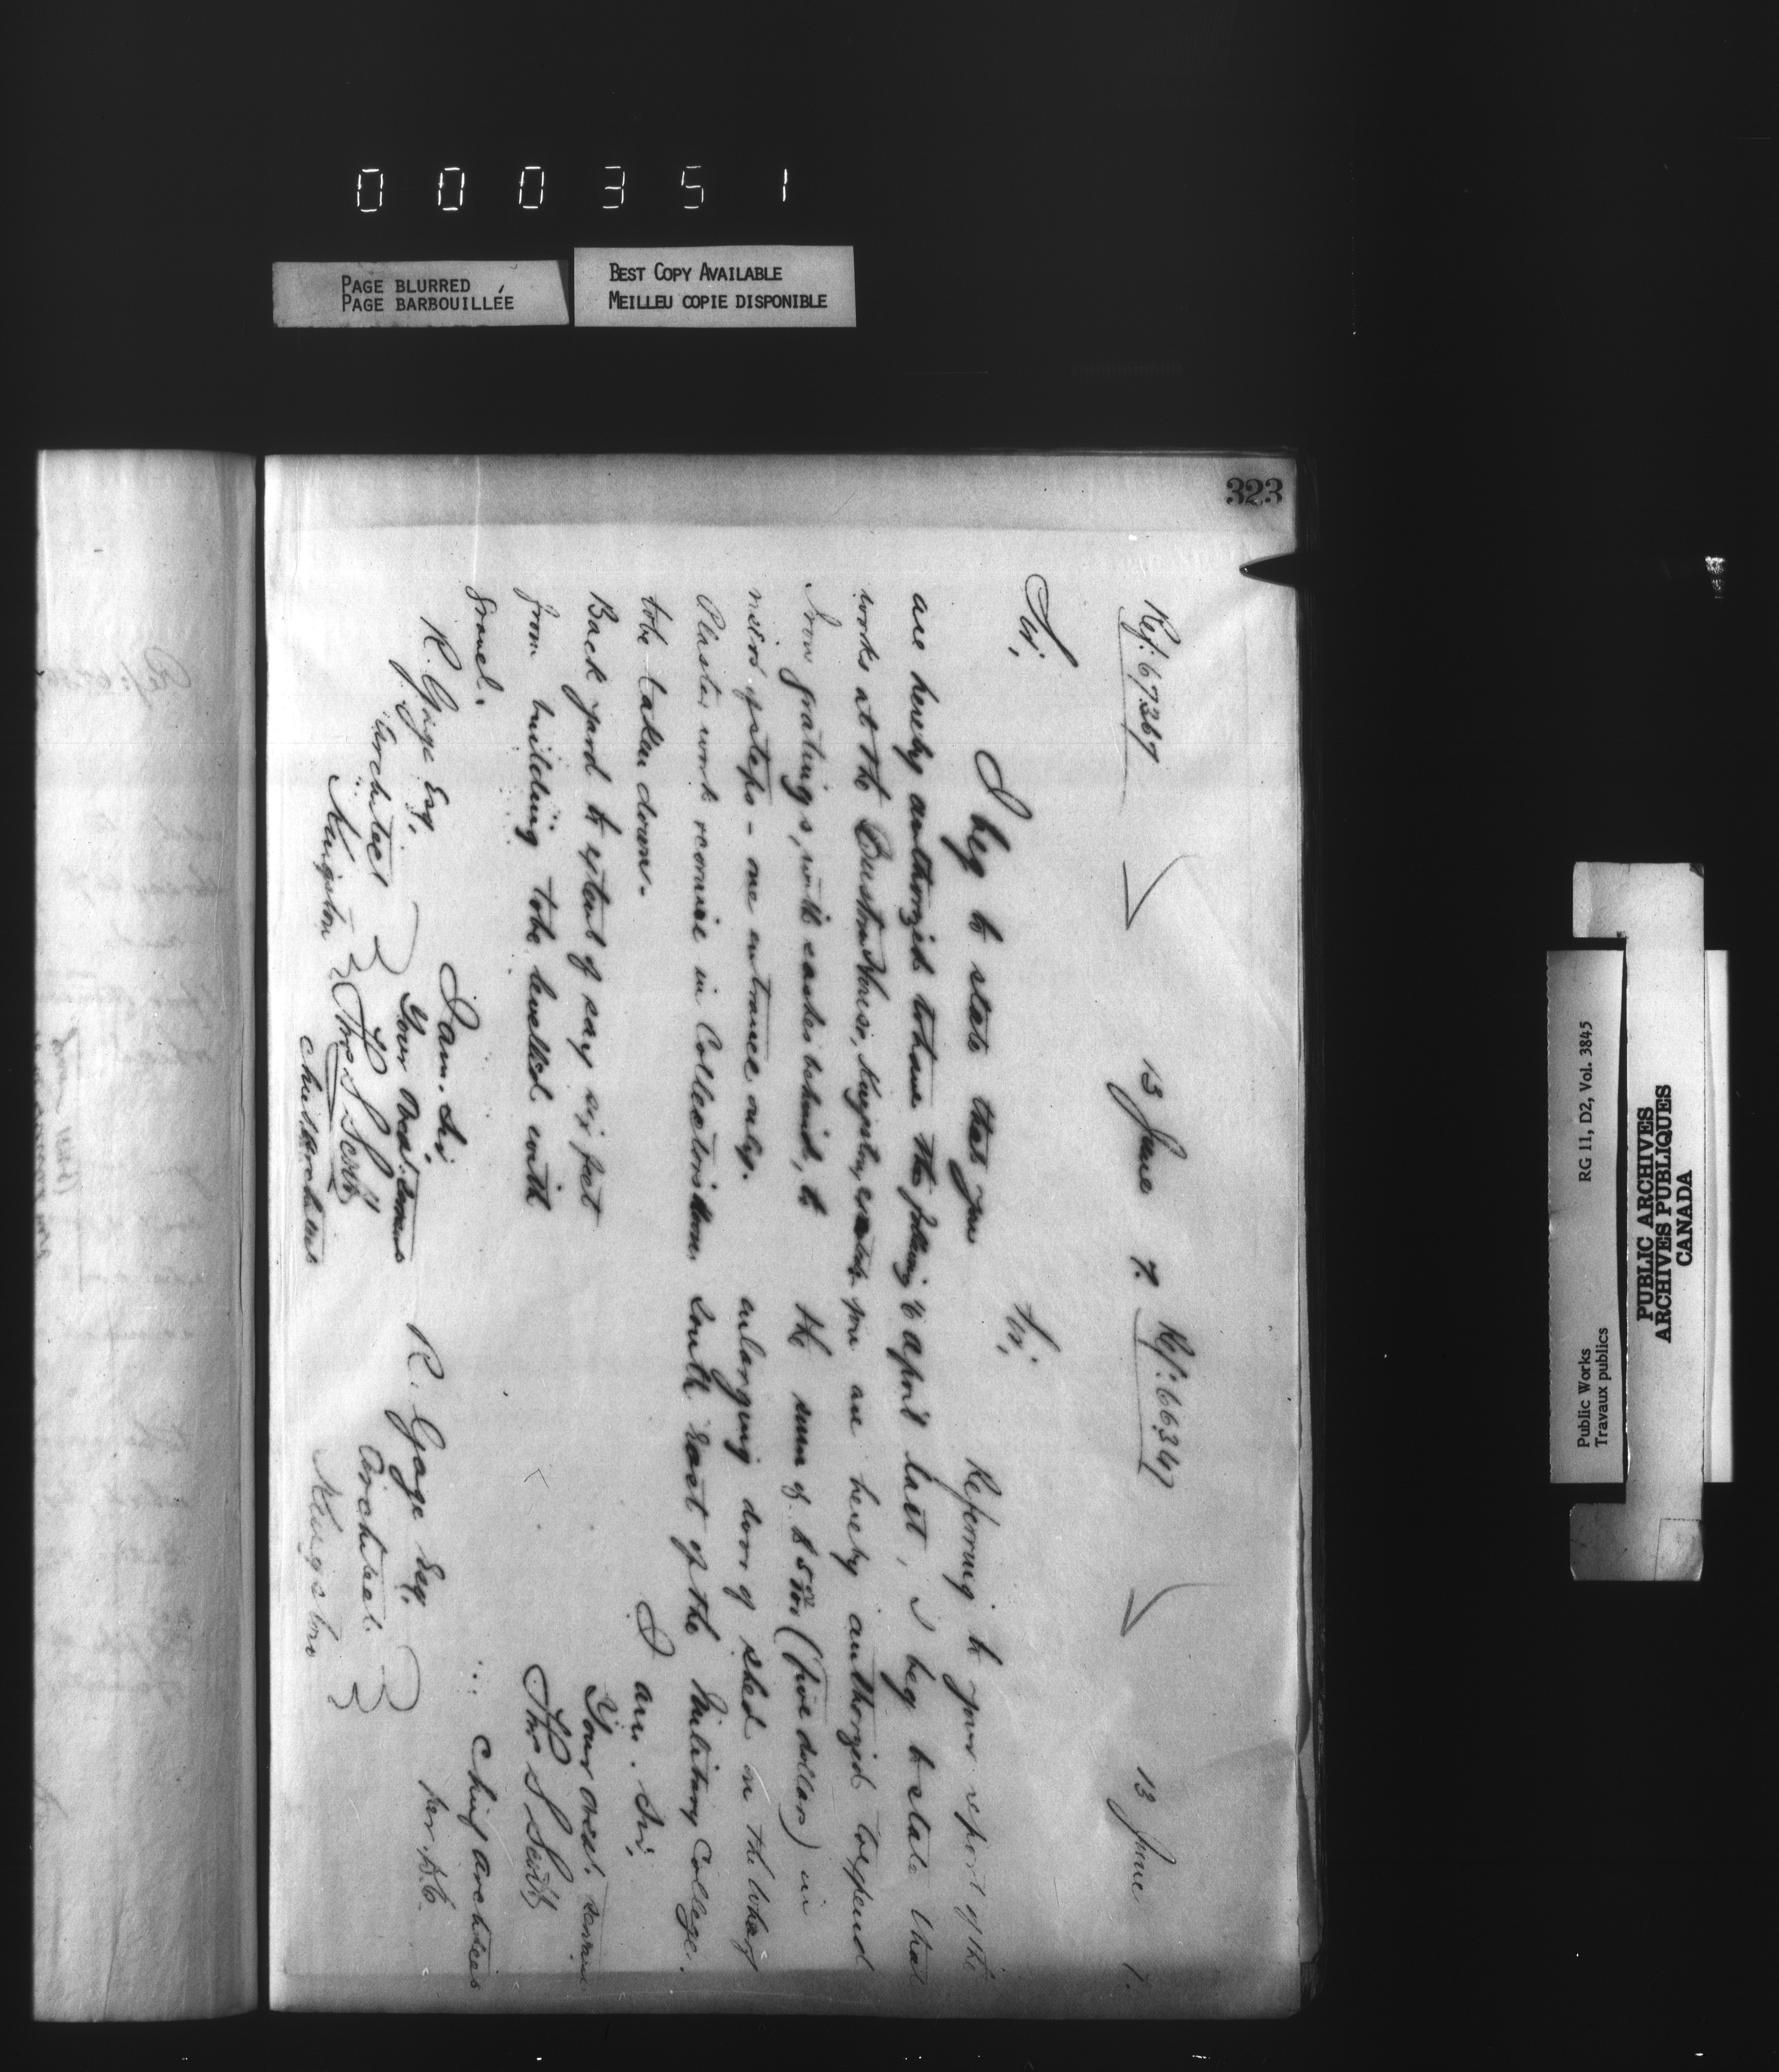 000351
PAGE BLURRED
PAGE BARBOUILLÉE
BEST COPY AVAILABLE
MEILLEU COPIE DISPONIBLE
323
Ref: 67367
13 June 7.
Sir,
I beg to state that you
are hereby authorized to have the following
works at the Custom House, Kingston, executed.
Iron gratings, with sashes behind, to
of steps - one entrance only.
Plaster work recornice in Collectors Room
to be taken down.
Back yard to extent of say six feet
from building to be levelled with
gravel.
I am. Sir
Your Obedt. Servant
Thos S Scott
Chief Architect
R. Gage Esq.
Architect
Kingston
Ref: 66347
13 June 7.
Sir,
Referring to your report of the
6 April last, I beg to state that
you are hereby authorized to expend
the sum of $5 00/100 (five dollars) in
enlarging door of shed on the wharf
South East of the Military College.
I am. Sir,
Your Obedt. Servant
Thos S Scott
Chief Architect
R. Gage Esq.
Architect.
Kingston
Public Works
Travaux publics
RG 11, D2, Vol. 3845
PUBLIC ARCHIVES
ARCHIVES PUBLIQUES
CANADA